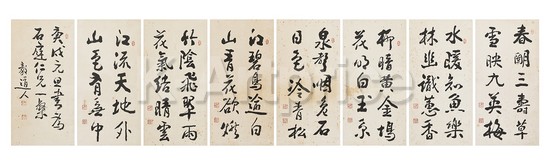 春開三壽草
雪映九英梅
水暖知魚樂
林幽識蕙香
柳暗黃金塢
花明白玉京
泉聲咽危石
日色冷青松
江碧鳥逾白
山青花欲燃
竹陰飛翠雨
花氣結晴雲
江流天地外
山色有無中
庚戌元旦書爲
石庭仁兄一粲
毅道人
K-Artprice